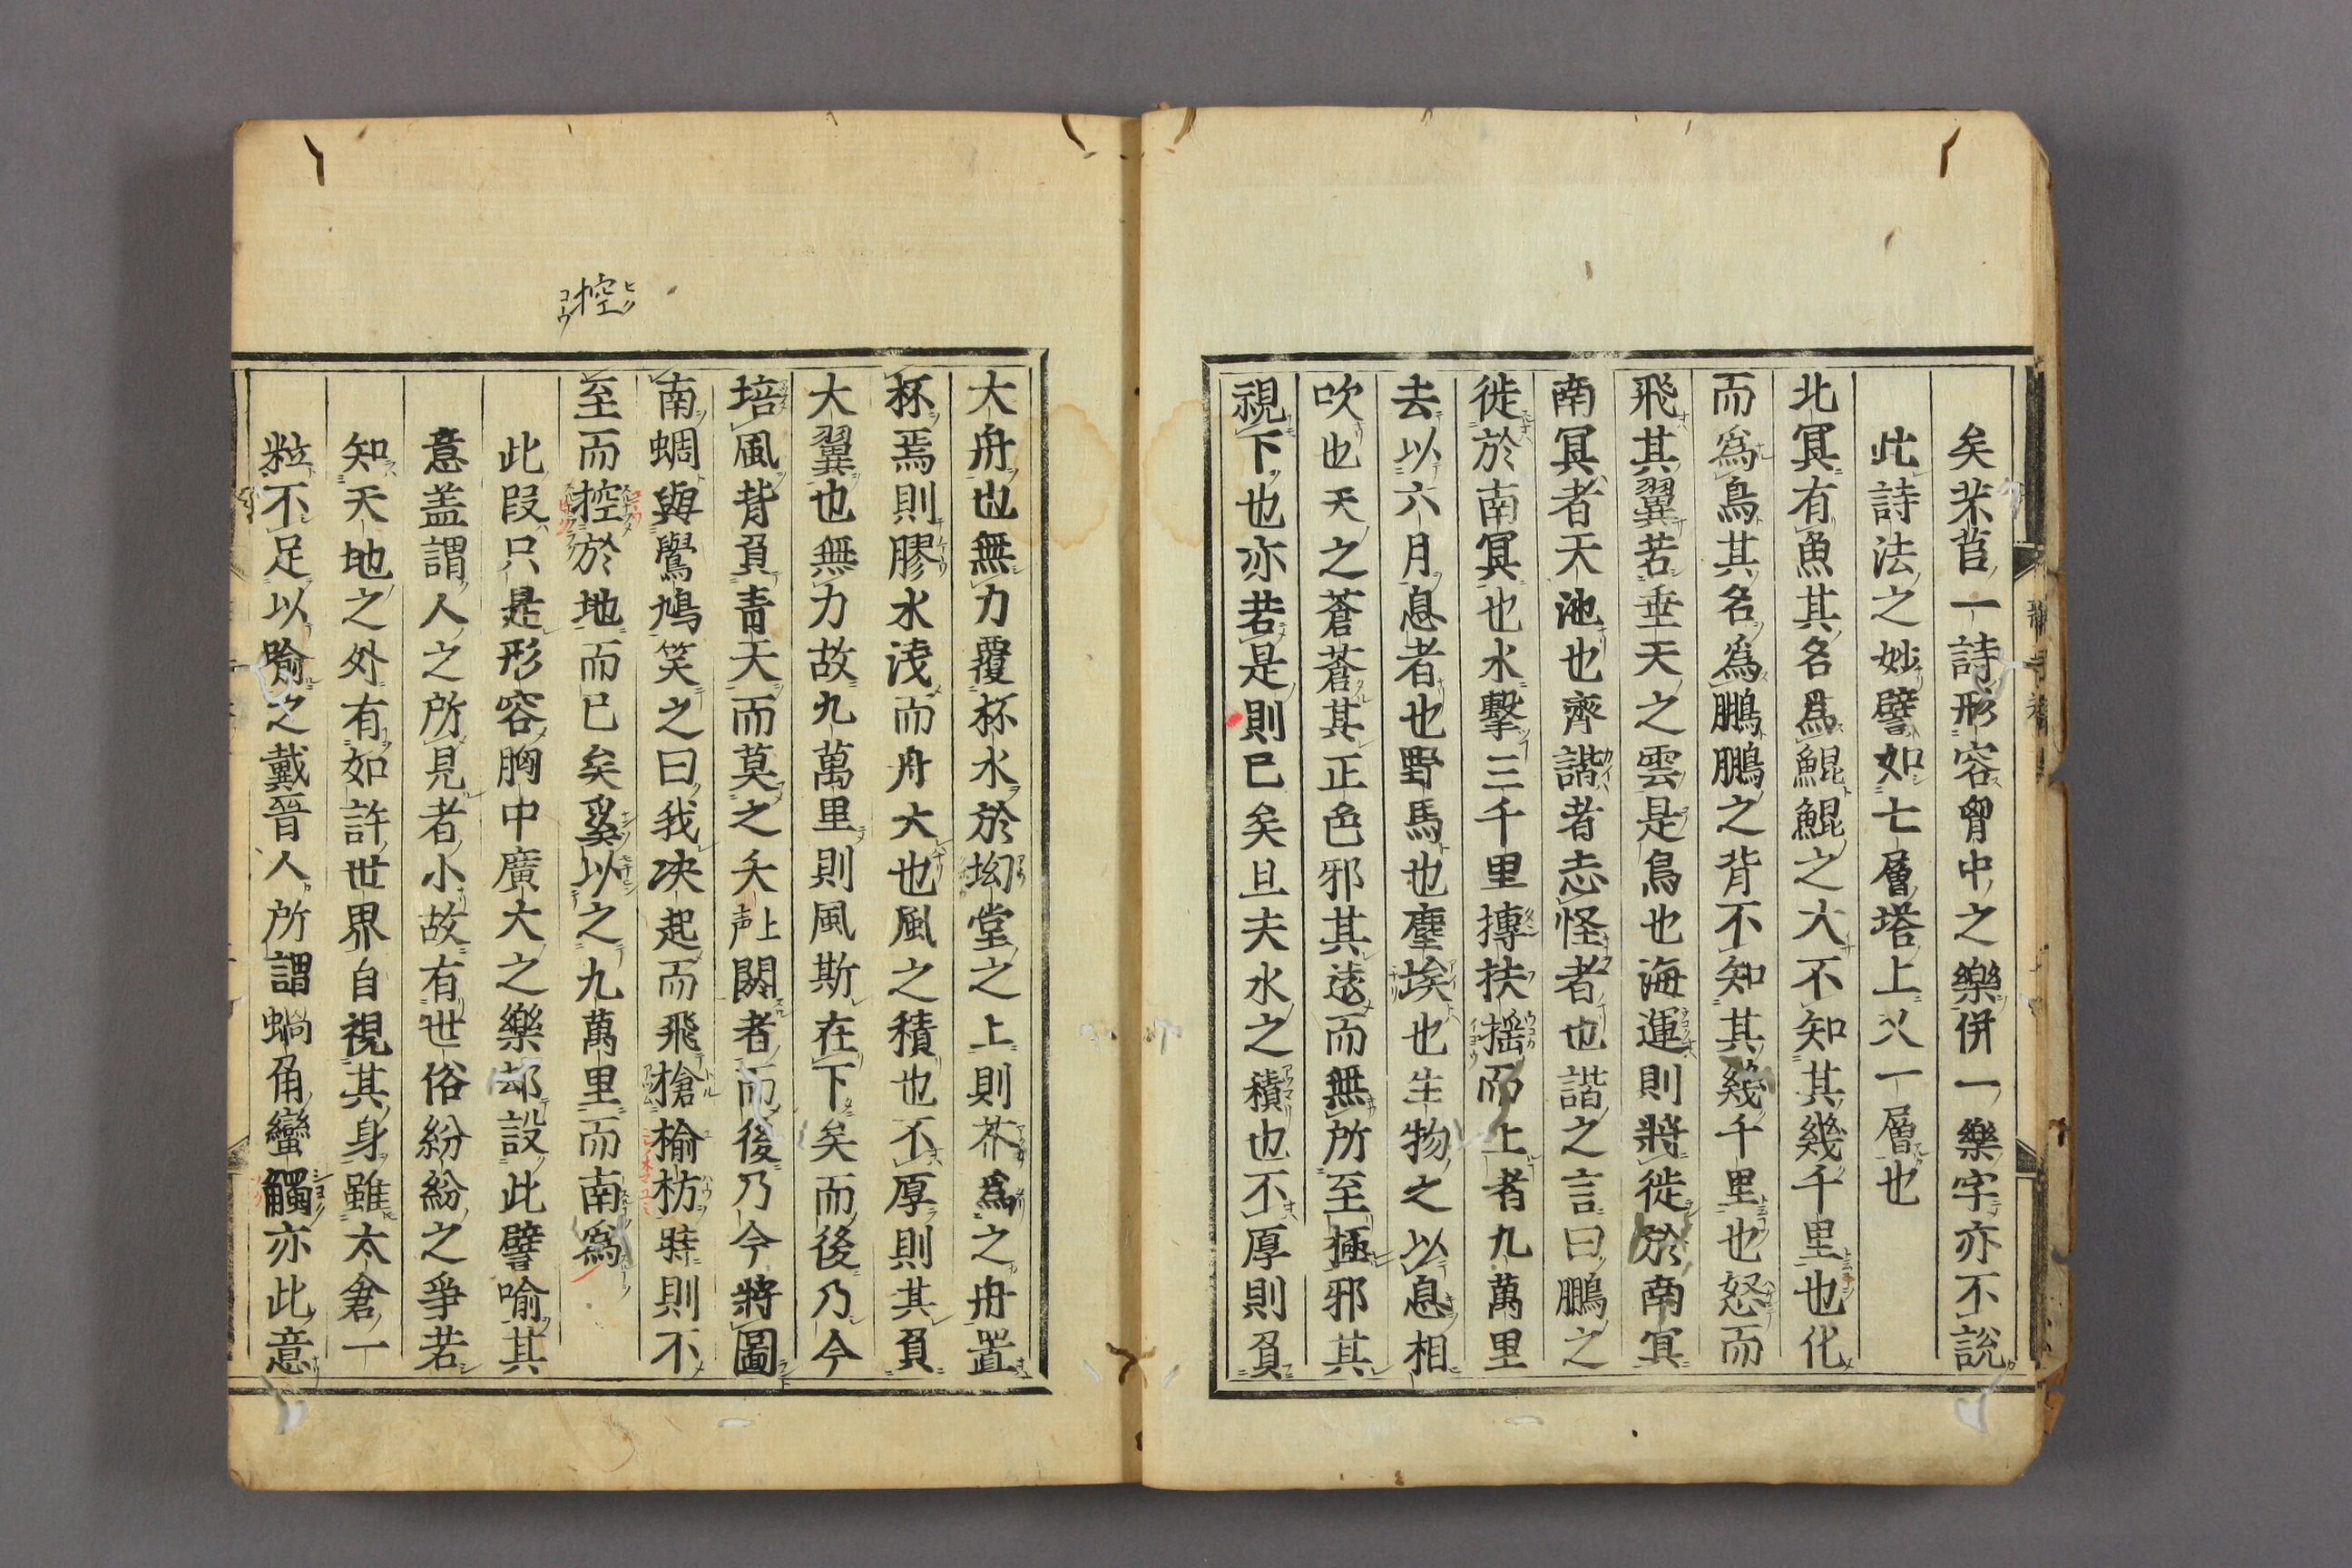 矣芣苢一詩形容胷中之樂併一樂字亦不説
此詩法之妙譬如七層塔上又一層也
北冥有魚其名爲鯤鯤之大不知其幾千里也化
而爲鳥其名爲鵬鵬之背不知其幾千里也怒而
飛其翼若垂天之雲是鳥也海運則將徙於南冥
南冥者天池也齊諧者志怪者也諧之言曰鵬之
徙於南冥也水擊三千里摶扶揺而上者九萬里
去以六月息者也野馬也塵埃也生物之以息相
吹也天之蒼蒼其正色邪其遠而無所至極邪其
視下也亦若是則已矣且夫水之積也不厚則負
大舟也無力覆杯水於坳堂之上則芥爲之舟置
杯焉則膠水淺而舟大也風之積也不厚則其負
大翼也無力故九萬里則風斯在下矣而後乃今
培風背負青天而莫之夭上声閼者而後乃今將圖
南蜩與鷽鳩笑之曰我决起而飛搶楡枋時則不
至而控於地而已矣奚以之九萬里而南爲
此段只是形容胸中廣大之樂却設此譬喻其
意盖謂人之所見者小故有世俗紛紛之爭若
知天地之外有如許世界自視其身雖太倉一
粒不足以喻之戴晉人所謂蝸角蠻觸亦此意
控
ヒク
コーウ